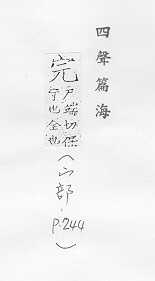 四聲篇海
完 戶端切保
守也全也
(宀部.
p.244
)